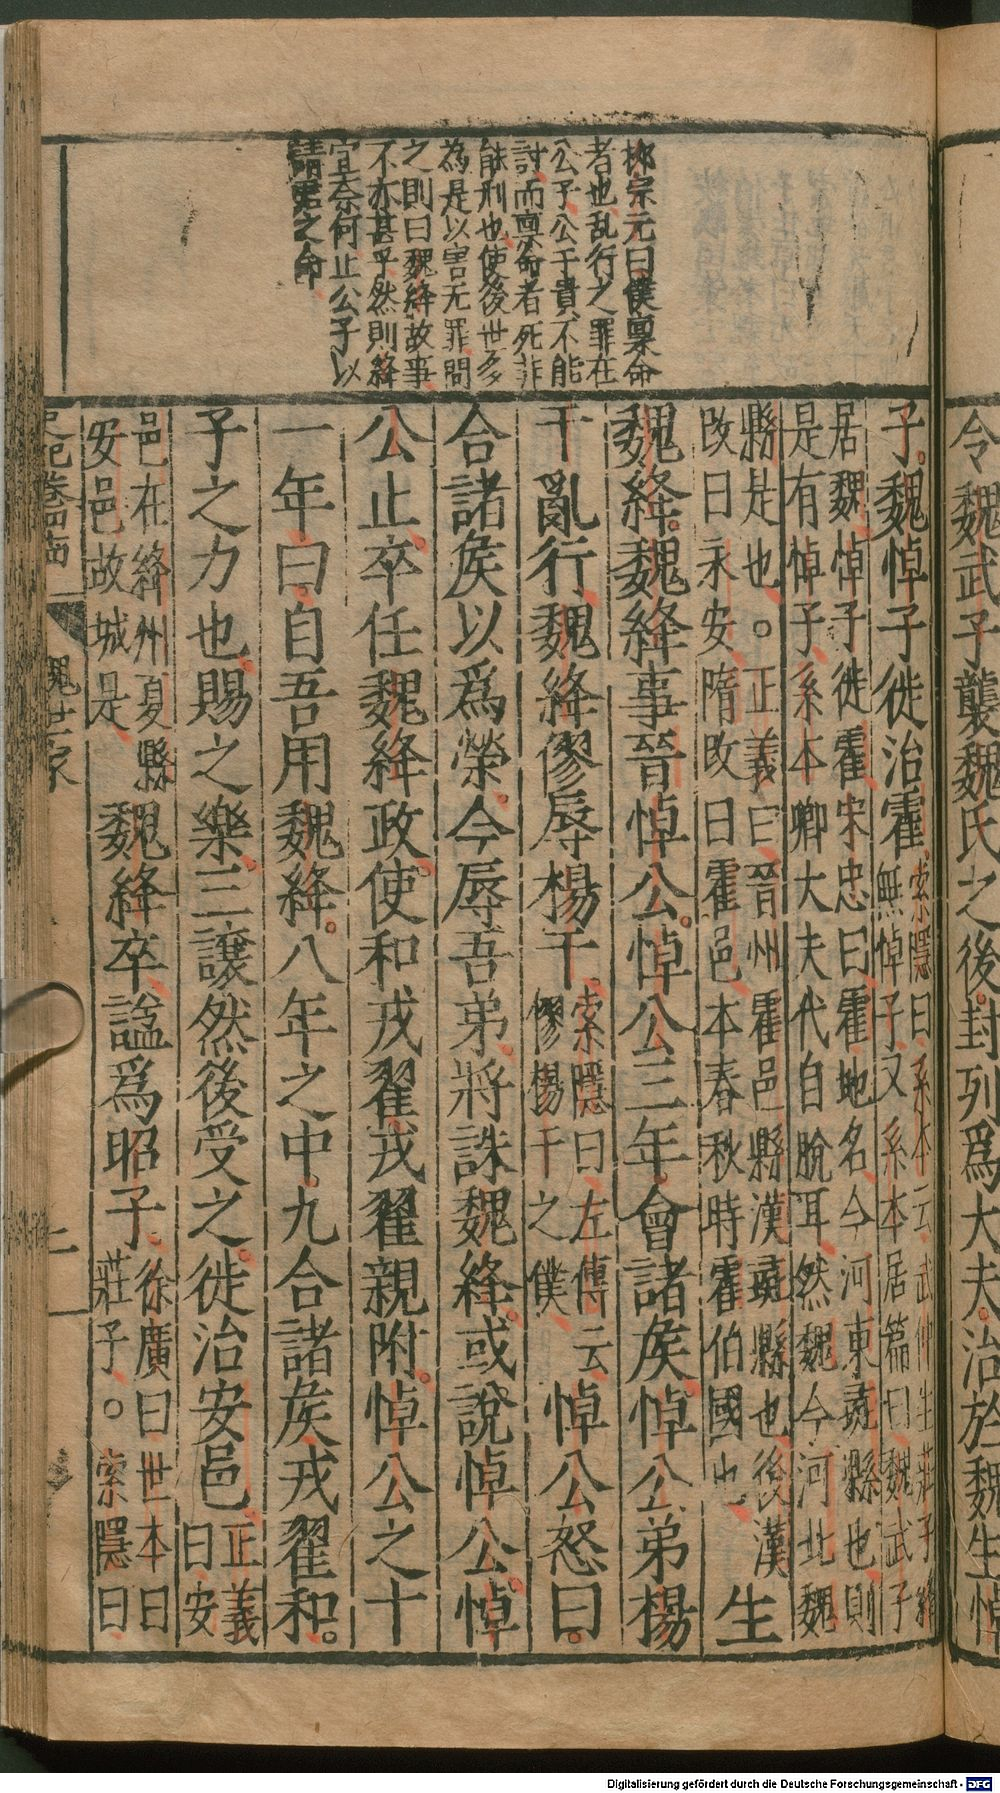 令魏武子襲魏氏之後封列爲大夫治於魏生悼
柳宗元曰僕稟命
者也乱行之罪在
公子公子貴不能
討而稟命者死非
能刑也使後世多
為是以害无罪問
之則曰魏絳故事
不亦甚乎然則絳
宜奈何止公子以
請君之命
子魏悼子徙治霍索隱曰系本云武仲生莊子絳
無悼子又系本居篇曰魏武子
居魏悼子徙霍宋忠曰霍地名今河東彘縣也則
是有悼子系本卿大夫代自脫耳然魏今河北魏
縣是也。正義曰晉州霍邑縣漢彘縣也後漢
改曰永安隋改曰霍邑本春秋時霍伯國也 生
魏絳魏絳事晉悼公悼公三年會諸矦悼公弟楊
干亂行魏絳僇辱楊干索隱曰左傳云
僇楊干之僕 悼公怒曰
合諸矦以爲榮今辱吾弟將誅魏絳或說悼公悼
公止卒任魏絳政使和戎翟戎翟親附悼公之十
一年曰自吾用魏絳八年之中九合諸矦戎翟和
子之力也賜之樂三讓然後受之徙治安邑正義
曰安
邑在絳州夏縣
安邑故城是 魏絳卒諡爲昭子徐廣曰世本曰
莊子。索隱曰
史記卷四十四 魏世家 二
Digitalisierung gefördert durch die Deutsche Forschungsgemeinschaft - DFG